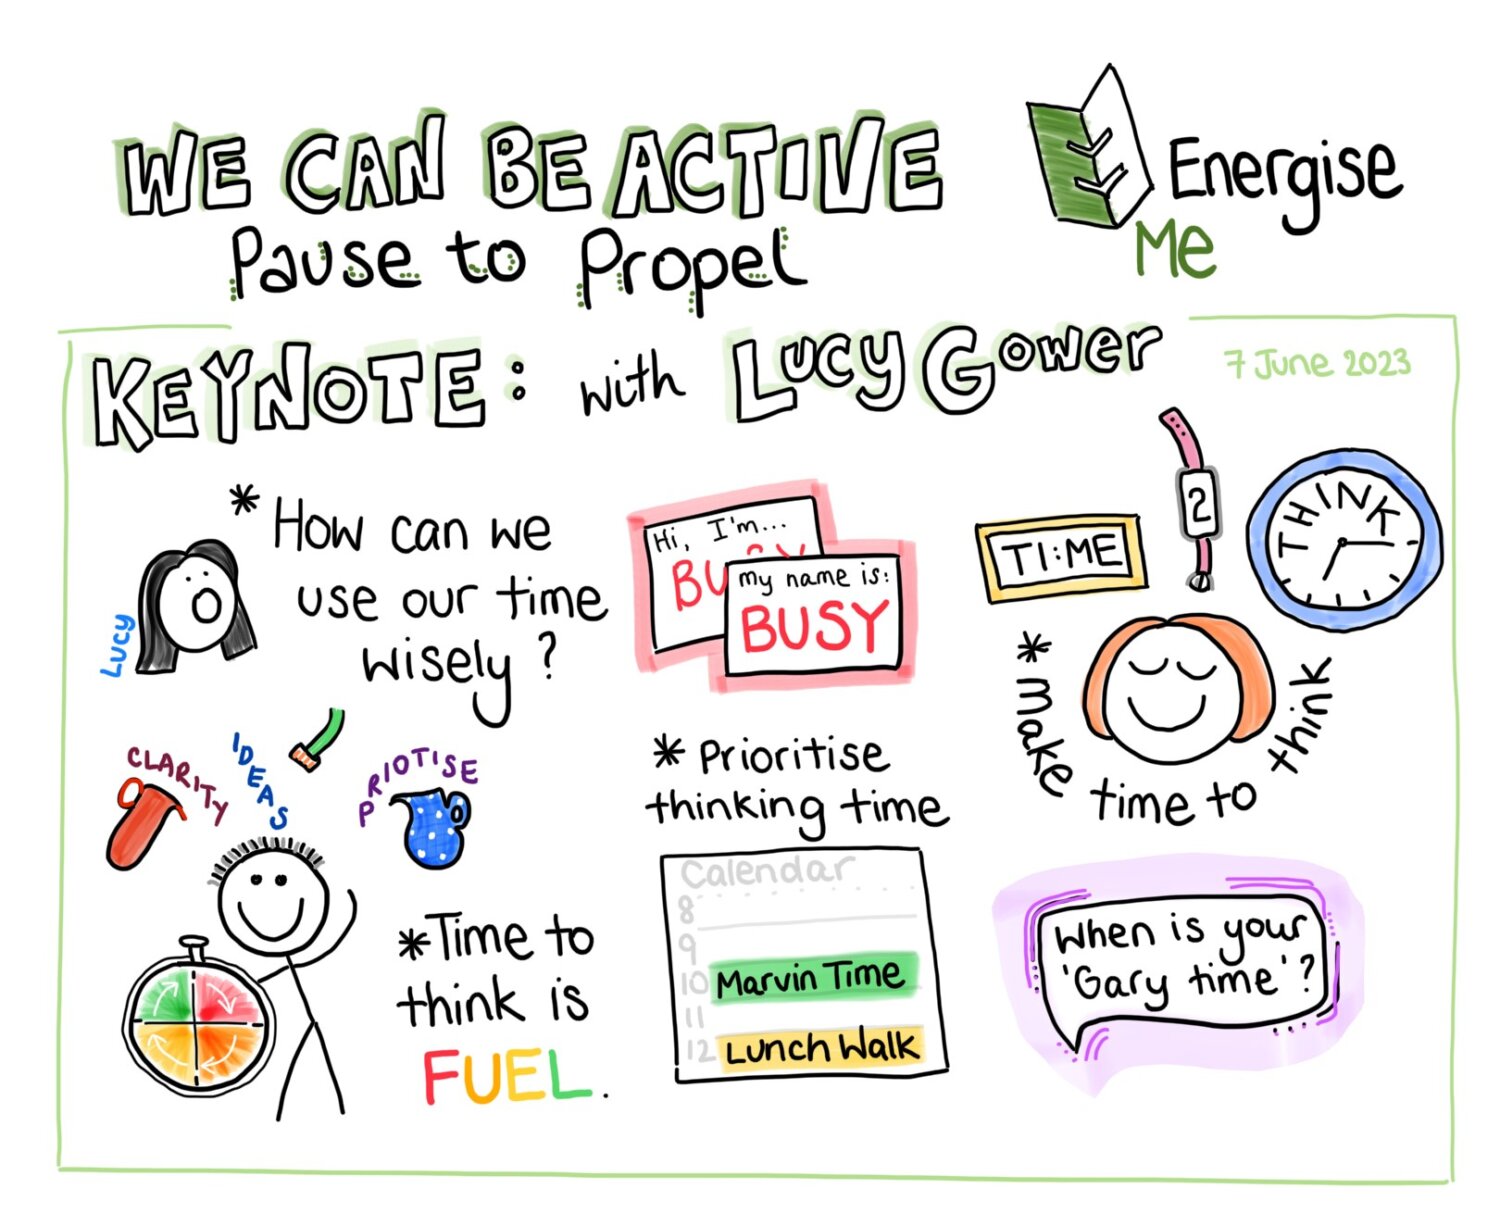 WE CAN BE ACTIVE
Pause to Propel
Energise
Me
KEYNOTE: with LUCY GOWER
7 June 2023
* How can we
use our time
wisely?
LUCY
Hi, I'm...
BUSY
my name is:
BUSY
TI:ME
2
THINK
* make time to think
CLARITY
IDEAS
PRIOTISE
* Time to
think is
FUEL.
* Prioritise
thinking time
Calendar
8
9
10 Marvin Time
11
12 Lunch Walk
When is your
'Gary time'?